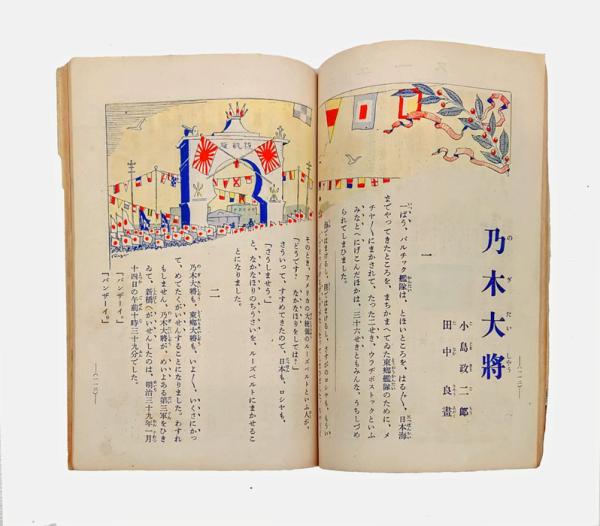 乃木大將
の ぎ たい しやう
小島政二郎
田中良畫
一
一ぱう、バルチック艦隊は、とほいところを、はる〴〵、日本海
までやってきたところを、まちかまへてゐた東郷艦隊のために、メ
チヤ〳〵にまかされて、たった二せき、ウラヂボストックといふ
みなとへにげこんだほかは、三十六せきともみんな、うちしづめ
られてしまひました。
そのとき、アメリカの大統領のルーズベルトといふ人が、
「どうです? なかなほりをしては?」
さういって、すすめてきたので、日本も、ロシヤも、
「さうしませう。」
と、なかなほりのちうさいを、ルーズベルトにまかせるこ
とになりました。
二
乃木大將も、東郷大將も、いよ〳〵、いくさにかっ
て、めでたくがいせんすることになりました。わすれ
もしません。乃木大將が、めいよある第三軍をひき
ゐて、新橋へがいせんしたのは、明治三十九年一月
十四日の午前十時三十九分でした。
「バンザーイ。」
「バンザーイ。」
凱旋